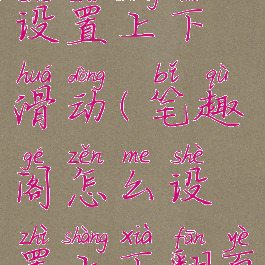 设置上下
huá dòng bǐ qù
滑动(笔趣
gé zěn me shè
阁怎么设
zhì shàng xià fān yè
置上下翻页